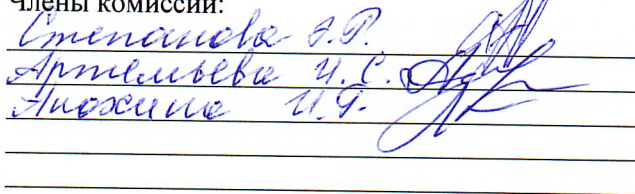 Члены комиссии:
Степанова Э.Р.
Артемьева И.С.
Анохина И.Г.